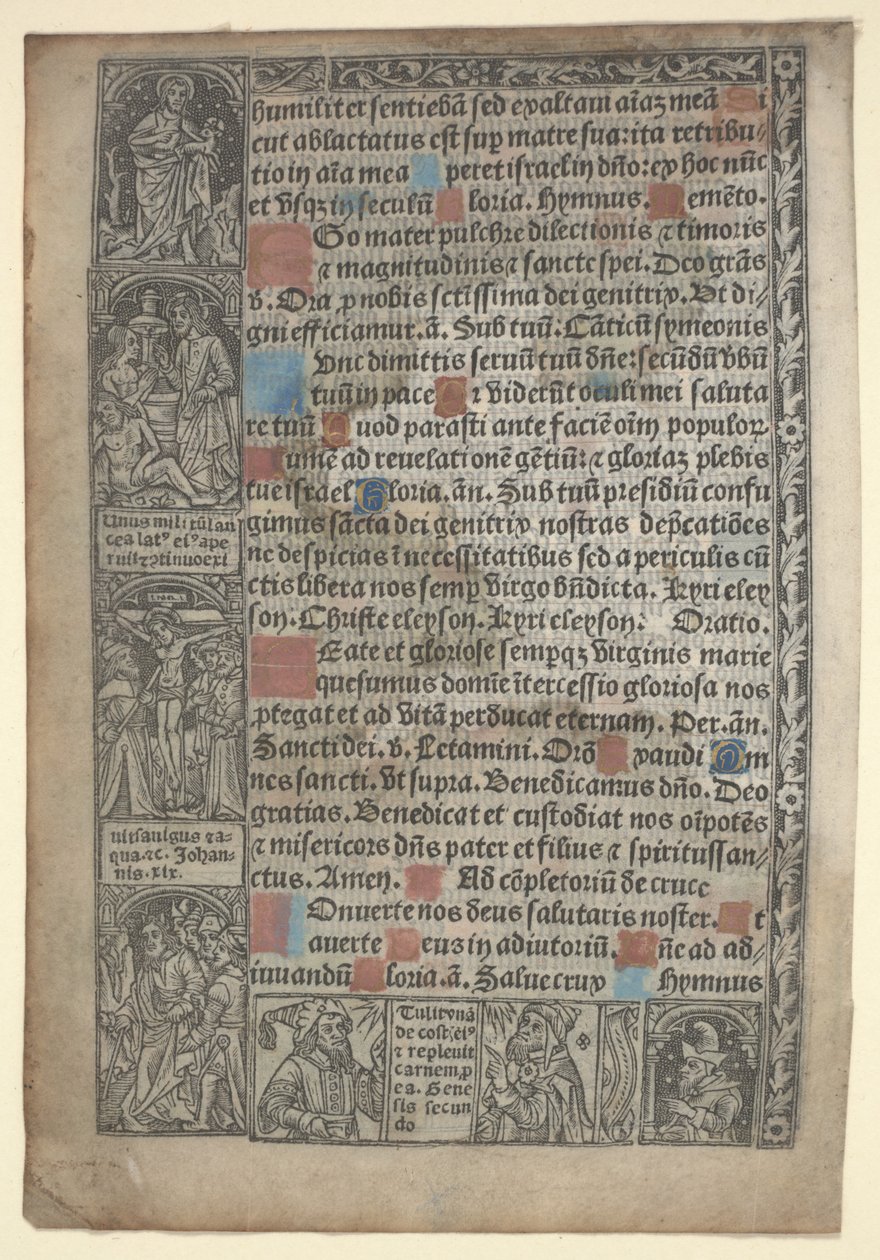 humiliter sentiebã sed exaltam aĩaȝ meã Si
cut ablactatus est sup̱ matre sua: ita retribu⸗
tio in aĩa mea peret israel in dño: ex hoc nũc
et vsqȝ in seculũ loria. Hymnus. emẽto.
Go mater pulchre dilectionis ⁊ timoris
⁊ magnitudinis ⁊ sancte spei. Deo grãs
v. Ora ꝓ nobis sctissima dei genitrix. Vt di⸗
gni efficiamur. ã. Sub tuũ: Cãticũ symeonis
vnc dimittis seruũ tuũ dñe: secũdũ v̾bũ
tuũ in pace Q ꝛ viderũt oculi mei saluta
re tuũ Quod parasti ante faciẽ oĩm populoꝝ
umẽ ad reuelationẽ gẽtiũ: ⁊ gloriaȝ plebis
tue israel Gloria. ãn. Sub tuũ presidiũ confu
gimus sãcta dei genitrix nostras dep̃catiões
ne despicias ĩ necessitatibus sed a periculis cũ
ctis libera nos semp̱ virgo bñdicta. Kyri eley
son. Christe eleyson. Kyri eleyson: Oratio.
Eate et gloriose semp̱qȝ virginis marie
quesumus domĩe ĩtercessio gloriosa nos
ꝓtegat et ad vitã perducat eternam. Per. ãn.
Sancti dei. v. Letamini. Orõ xaudi Om
nes sancti. vt supra. Benedicamus dño. Deo
gratias. Benedicat et custodiat nos oĩpotẽs
⁊ misericors dñs pater et filius ⁊ spiritussan⸗
ctus. Amen. Ad cõpletoriũ de cruce
Onuerte nos deus salutaris noster. t
auerte eus in adiutoriũ. ñe ad ad⸗
iuuandũ loria. ã. Salue crux Hymnus
Unus militũ lan
cea latꝰ eiꝰ ape
ruit ⁊ ↄtinuo exi
uit sãguis ⁊ a⸗
qua. ⁊c. Johan⸗
nis. xix.
Tulit vnã
de cost. eiꝰ
⁊ repleuit
carnem. p̱
ea. Gene
sis secun
do